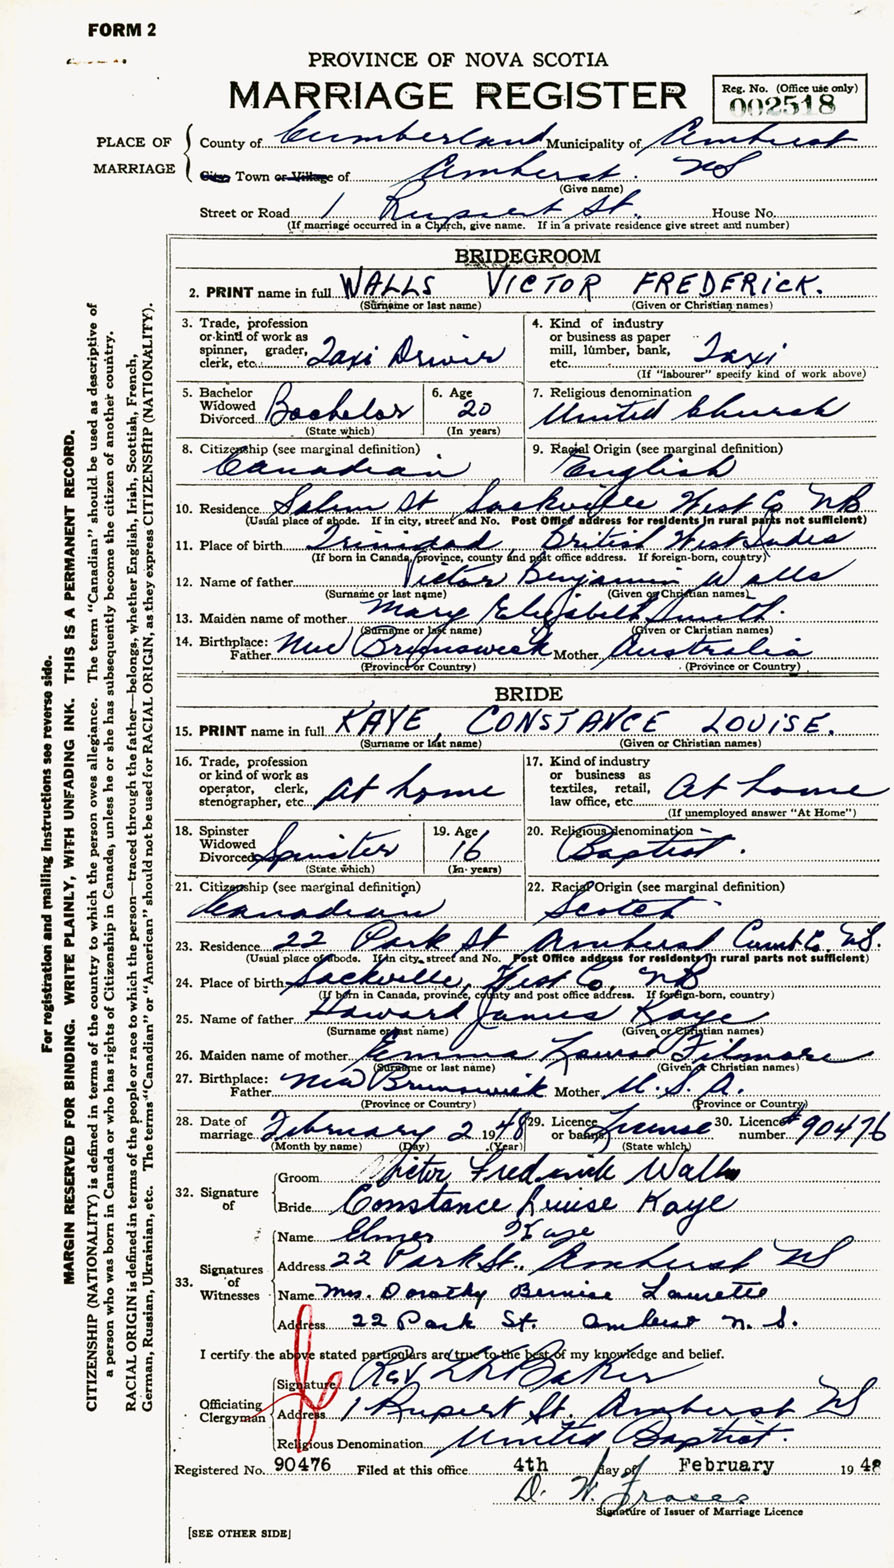 FORM 2
PROVINCE OF NOVA SCOTIA
MARRIAGE REGISTER
Reg. No. (Office use only)
002518
PLACE OF MARRIAGE
County of Cumberland Municipality of Amherst
City Town or Village of Amherst. NS
(Give name)
Street or Road 1 Rupert St. House No.
(If marriage occurred in a Church, give name. If in a private residence give street and number)
BRIDEGROOM
2. PRINT name in full WALLS VICTOR FREDERICK.
(Surname or last name) (Given or Christian names)
3. Trade, profession or kind of work as spinner, grader, clerk, etc. Taxi Driver
4. Kind of industry or business as paper mill, lumber, bank, etc. Taxi
(If "labourer" specify kind of work above)
5. Bachelor Widowed Divorced Bachelor
(State which)
6. Age 20
(In years)
7. Religious denomination
United Church
8. Citizenship (see marginal definition)
Canadian
9. Racial Origin (see marginal definition)
English
10. Residence Salem St Sackville West Co NB
(Usual place of abode. If in city, street and No. Post Office address for residents in rural parts not sufficient)
11. Place of birth Trinidad British West Indes
(If born in Canada, province, county and post office address. If foreign-born, country)
12. Name of father Victor Benjamin Walls
(Surname or last name) (Given or Christian names)
13. Maiden name of mother Mary Elizabeth Smith.
(Surname or last name) (Given or Christian names)
14. Birthplace: Father New Brunswick Mother Australia
(Province or Country) (Province or Country)
BRIDE
15. PRINT name in full KAYE, CONSTANCE LOUISE.
(Surname or last name) (Given or Christian names)
16. Trade, profession or kind of work as operator, clerk, stenographer, etc. at home
17. Kind of industry or business as textiles, retail, law office, etc. At home
(If unemployed answer "At Home")
18. Spinster Widowed Divorced Spinster
(State which)
19. Age 16
(In years)
20. Religious denomination
Baptist.
21. Citizenship (see marginal definition)
Canadian
22. Racial Origin (see marginal definition)
Scotch
23. Residence 22 Park St Amherst Cumb Co. N.S.
(Usual place of abode. If in city, street and No. Post Office address for residents in rural parts not sufficient)
24. Place of birth Sackville, West Co, NB
(If born in Canada, province, county and post office address. If foreign-born, country)
25. Name of father Howard James Kaye
(Surname or last name) (Given or Christian names)
26. Maiden name of mother Emma Filmore
(Surname or last name) (Given or Christian names)
27. Birthplace: Father New Brunswick Mother U. S. A.
(Province or Country) (Province or Country)
28. Date of marriage February 2 1948
(Month by name) (Day) (Year)
29. Licence or banns License
(State which)
30. Licence number #90476
32. Signature of
Groom Victor Frederick Walls
Bride Constance Louise Kaye
33. Signatures of Witnesses
Name Elmer Kaye
Address 22 Park St., Amherst NS
Name Mrs. Dorothy Bernise Laurette
Address 22 Park St. Amherst N. S.
I certify the above stated particulars are true to the best of my knowledge and belief.
Officiating Clergyman
Signature Rev Baker
Address 1 Rupert St. Amherst NS
Religious Denomination United Baptist.
Registered No. 90476 Filed at this office 4th day of February 1948
D. W. Fraser
Signature of Issuer of Marriage Licence
[SEE OTHER SIDE]
For registration and mailing instructions see reverse side.
MARGIN RESERVED FOR BINDING. WRITE PLAINLY, WITH UNFADING INK. THIS IS A PERMANENT RECORD.
CITIZENSHIP (NATIONALITY) is defined in terms of the country to which the person owes allegiance. The term "Canadian" should be used as descriptive of
a person who was born in Canada or who has rights of Citizenship in Canada, unless he or she has subsequently become the citizen of another country.
RACIAL ORIGIN is defined in terms of the people or race to which the person—traced through the father—belongs, whether English, Irish, Scottish, French,
German, Russian, Ukrainian, etc. The terms "Canadian" or "American" should not be used for RACIAL ORIGIN, as they express CITIZENSHIP (NATIONALITY).